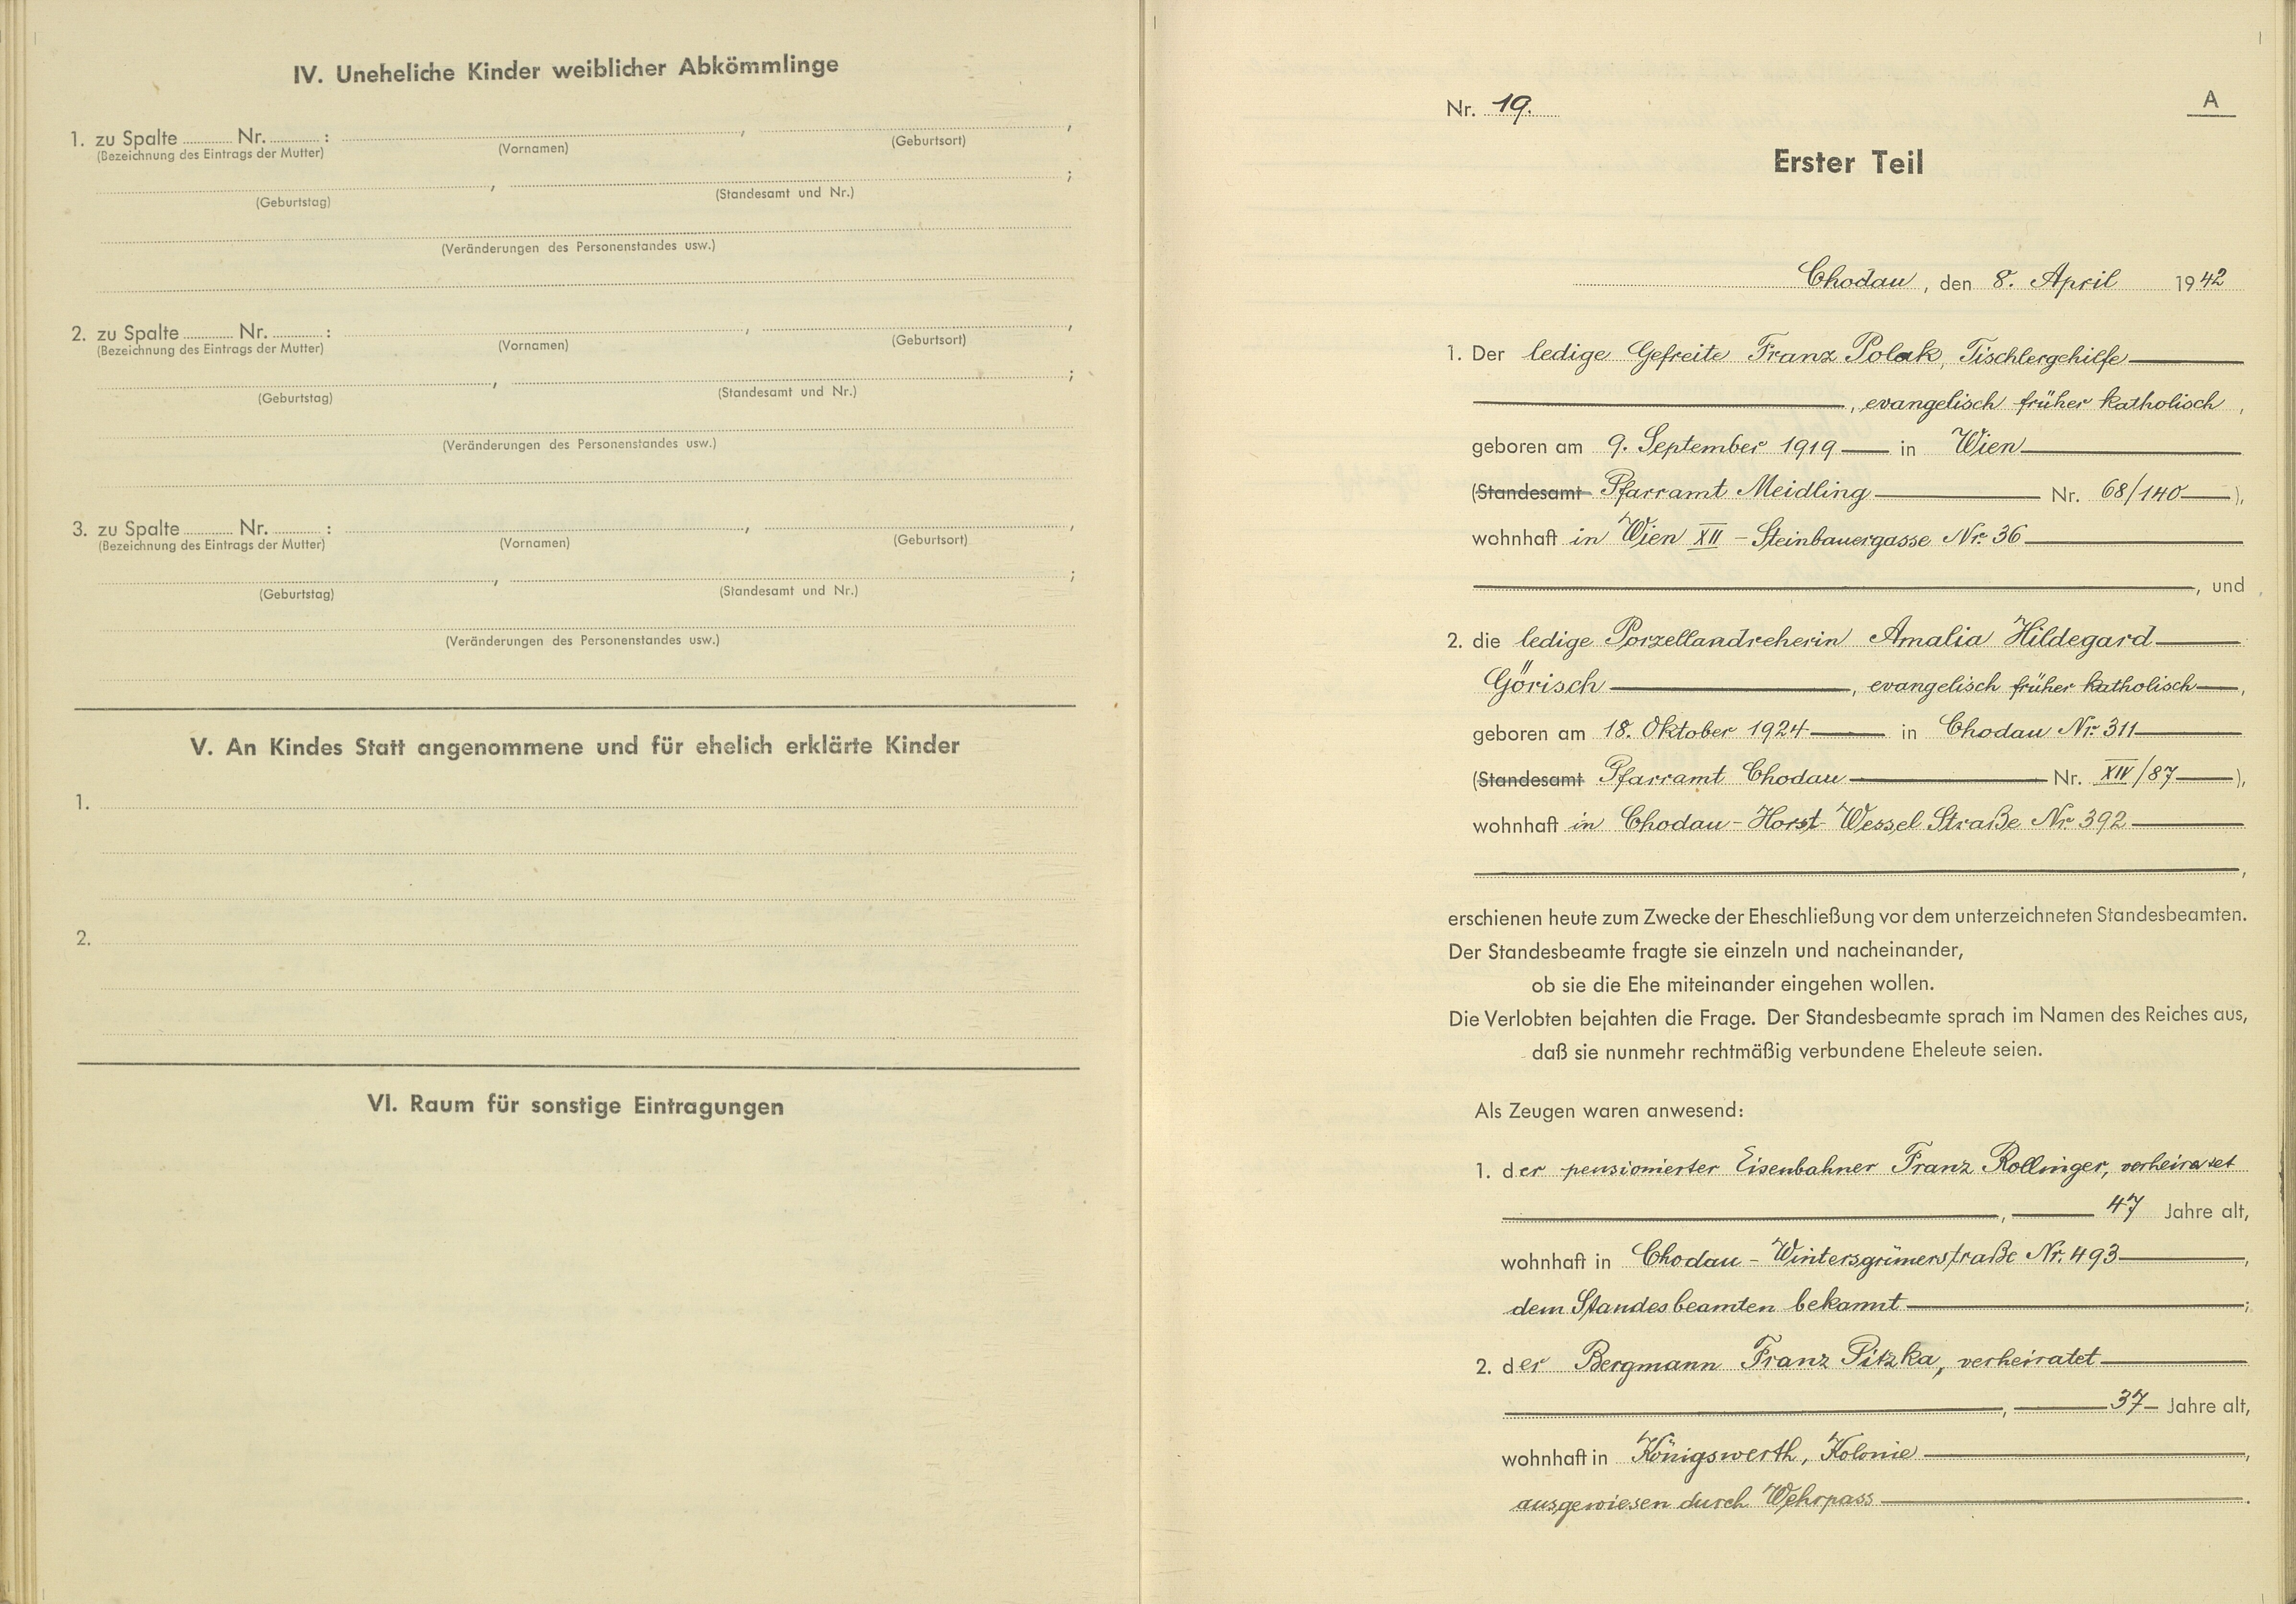 IV. Uneheliche Kinder weiblicher Abkömmlinge
1. zu Spalte ........ Nr. ........ : ........ , ........ ,
(Bezeichnung des Eintrags der Mutter) (Vornamen) (Geburtsort)
........ , ........ ;
(Geburtstag) (Standesamt und Nr.)
(Veränderungen des Personenstandes usw.)
2. zu Spalte ........ Nr. ........ : ........ , ........ ,
(Bezeichnung des Eintrags der Mutter) (Vornamen) (Geburtsort)
........ , ........ ;
(Geburtstag) (Standesamt und Nr.)
(Veränderungen des Personenstandes usw.)
3. zu Spalte ........ Nr. ........ : ........ , ........ ,
(Bezeichnung des Eintrags der Mutter) (Vornamen) (Geburtsort)
........ , ........ ;
(Geburtstag) (Standesamt und Nr.)
(Veränderungen des Personenstandes usw.)
V. An Kindes Statt angenommene und für ehelich erklärte Kinder
1.
2.
VI. Raum für sonstige Eintragungen
A
Nr. 19.
Erster Teil
Chodau, den 8. April 1942
1. Der ledige Gefreite Franz Polak, Tischlergehilfe
, evangelisch früher katholisch,
geboren am 9. September 1919 in Wien
(Standesamt Pfarramt Meidling Nr. 68/140),
wohnhaft in Wien XII - Steinbauergasse Nr. 36
, und
2. die ledige Porzellandreherin Amalia Hildegard
Görisch, evangelisch früher katholisch,
geboren am 18. Oktober 1924 in Chodau Nr. 311
(Standesamt Pfarramt Chodau Nr. XIV/87),
wohnhaft in Chodau - Horst-Wessel Straße Nr. 392
,
erschienen heute zum Zwecke der Eheschließung vor dem unterzeichneten Standesbeamten.
Der Standesbeamte fragte sie einzeln und nacheinander,
ob sie die Ehe miteinander eingehen wollen.
Die Verlobten bejahten die Frage. Der Standesbeamte sprach im Namen des Reiches aus,
daß sie nunmehr rechtmäßig verbundene Eheleute seien.
Als Zeugen waren anwesend:
1. der pensionierter Eisenbahner Franz Rollinger, verheiratet
, 47 Jahre alt,
wohnhaft in Chodau - Wintersgrünerstraße Nr. 493,
dem Standesbeamten bekannt;
2. der Bergmann Franz Pitzka, verheiratet
, 37 Jahre alt,
wohnhaft in Königswerth, Kolonie,
ausgewiesen durch Wehrpass.